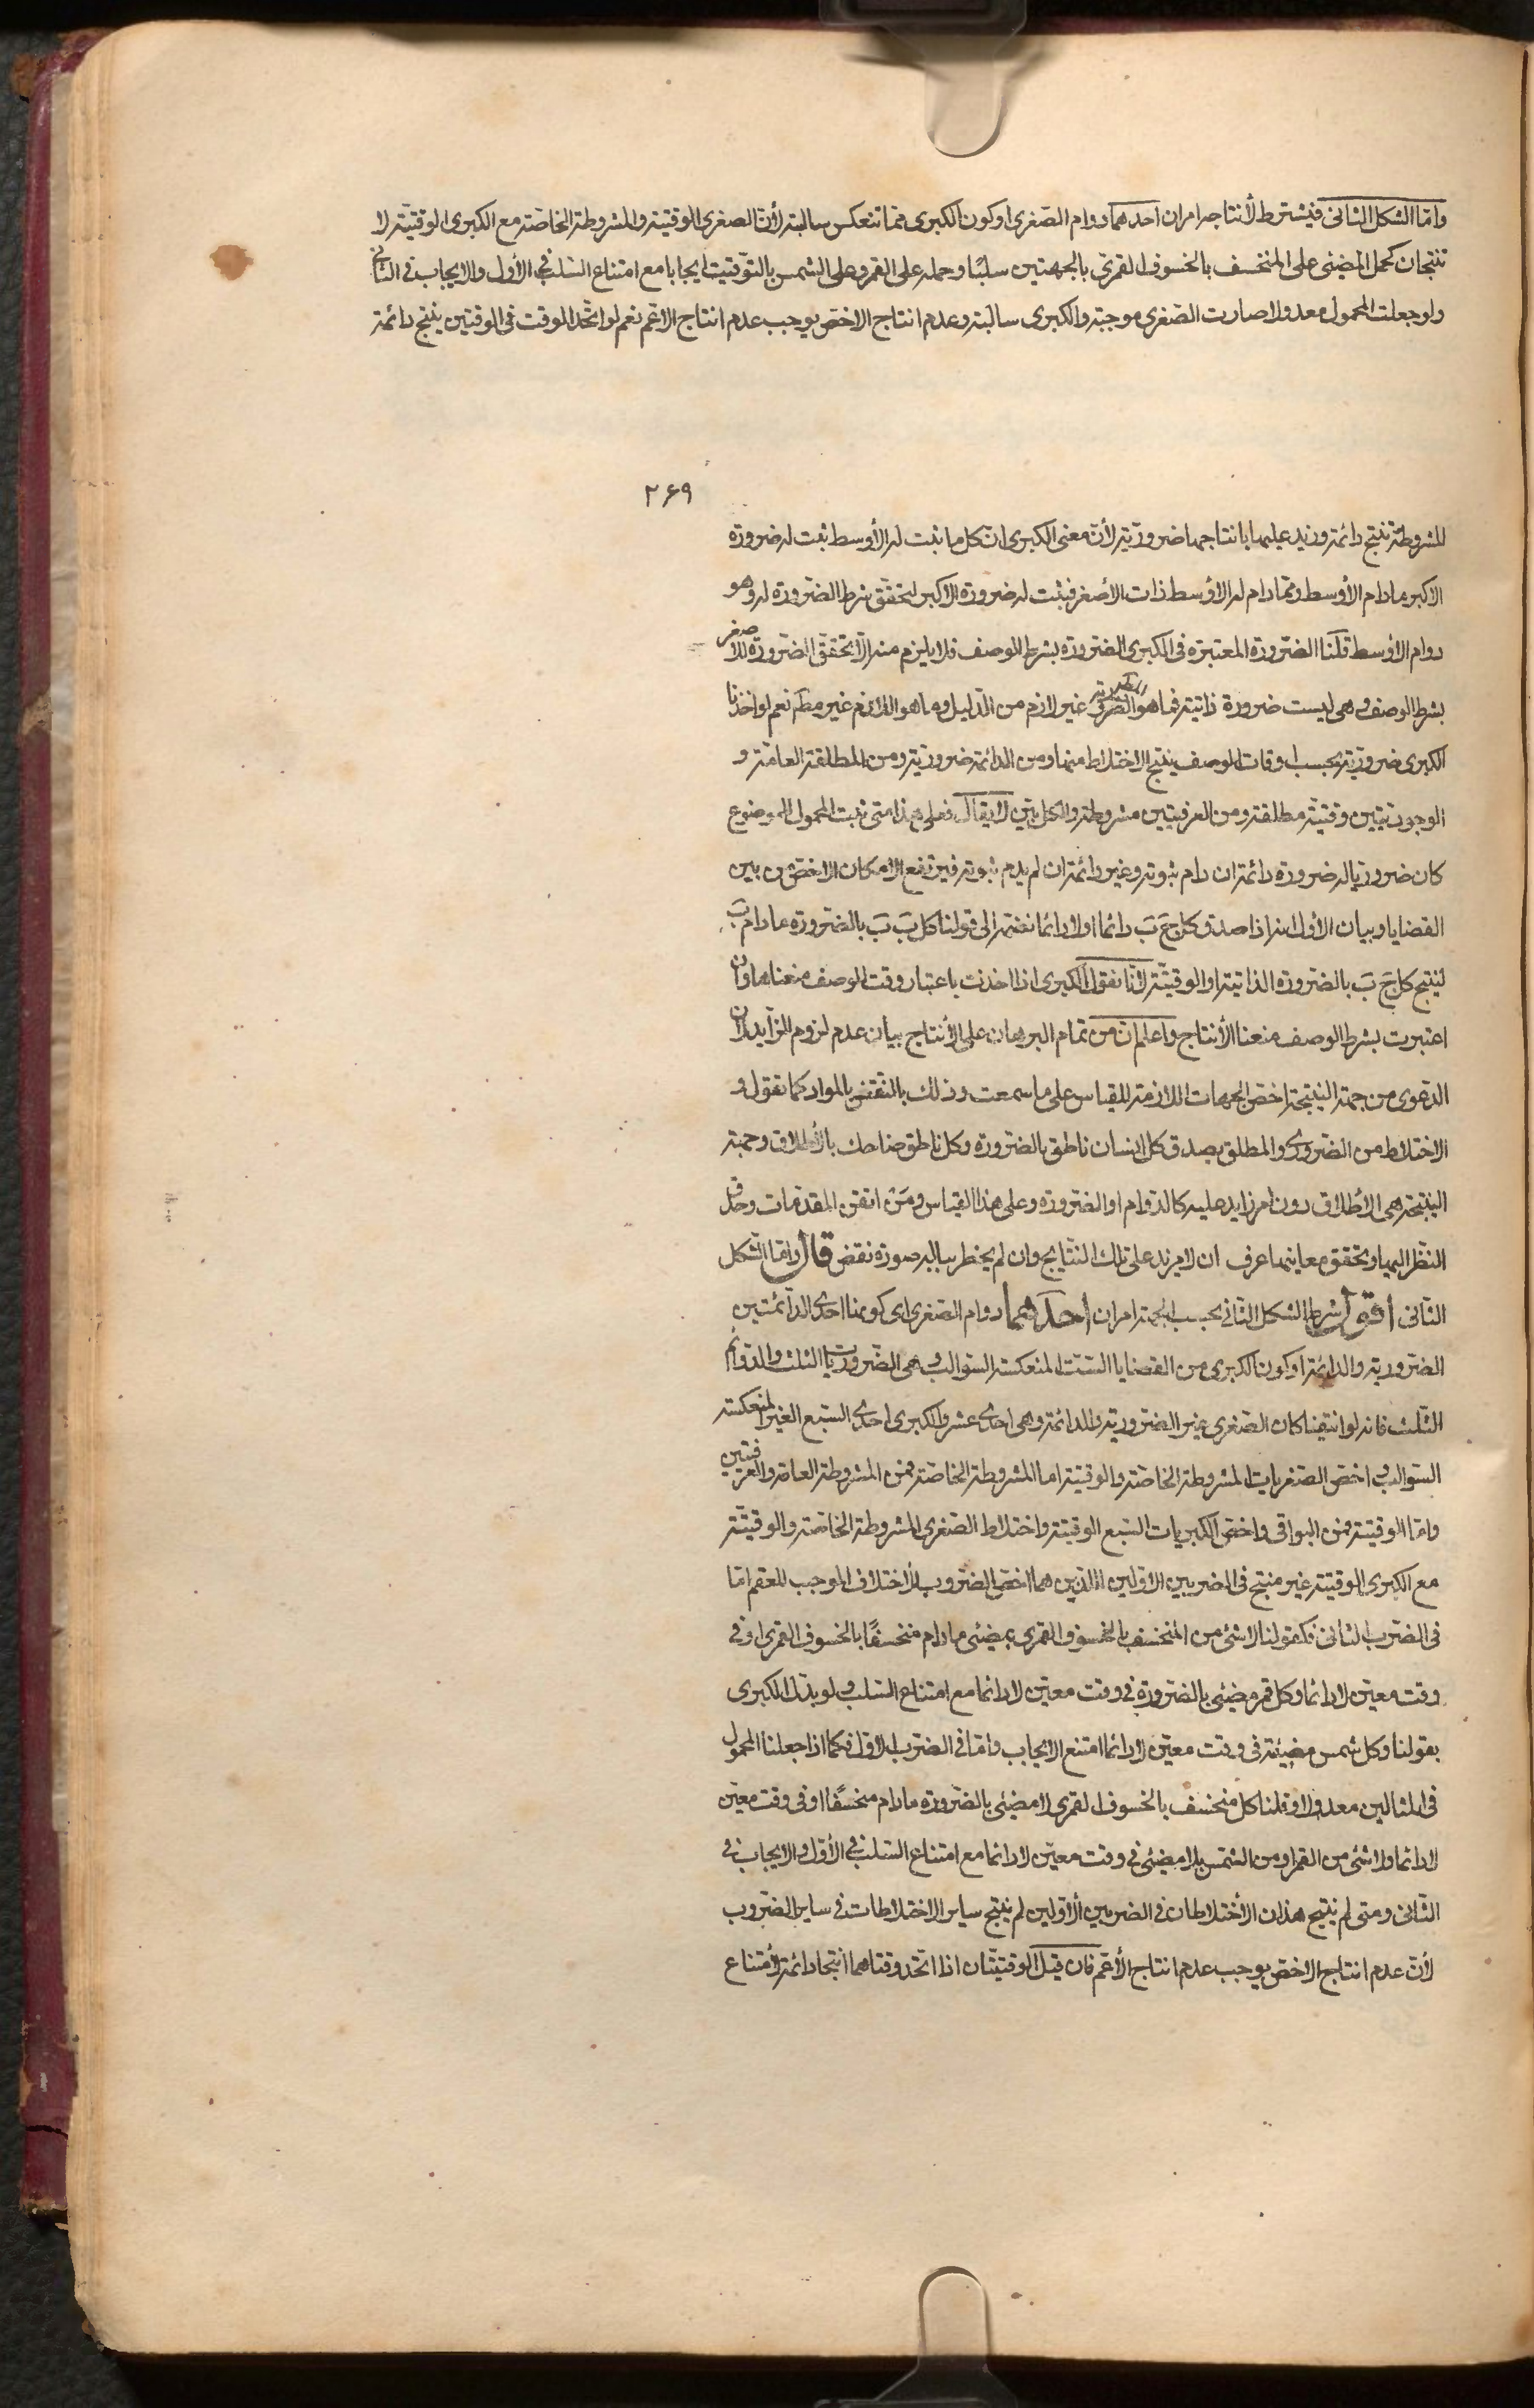 وامّا الشكل الثانى فيشترط لأنتاجه امران احدهما دوام الصّغرى او كون الكبرى ممّا تنعكس سالبته لأنّ الصغرى الوقتيّة والمشروطة الخاصّة مع الكبرى الوقتيّة لا
تنتجان كحمل المضئ على المنخسف بالخسوف القمرىّ بالجهتين سلبًا وحمله على القمر وعلى الشمس بالتّوقيت ايجابا مع امتناع السّلب فى الأول والايجاب فى الثانى
ولو جعلت المحمول معدولا صارت الصّغرى موجبة والكبرى سالبة وعدم انتاج الاخصّ يوجب عدم انتاج الاعّم نعم لو اتّحد الوقت فى الوقتين ينتج دائمة
٢٦٩
المشروطة تنتج دائمة وزيد عليهما بانتاجهما ضروريّة لأنّ معنى الكبرى انّ كل ما ثبت له الأوسط ثبت له ضرورة
الاكبر مادام الأوسط وممّا دام له الأوسط ذات الأصغر فيثبت له ضرورة الاكبر لتحقّق شرط الضّرورة له وهو
دوام الأوسط قلنا الضّرورة المعتبرة فى الكبرى الضّرورة بشرط الوصف فلا يلزم منه الّا تحقّق الضّرورة للأصغر
بشرط الوصف وهى ليست ضرورة ذاتيّة فما هو المط غير لازم من الدّليل وما هو اللازم غير مطّ نعم لو اخذنا
الكبرى ضروريّة بحسب اوقات الوصف ينتج الاختلاط منها ومن الدائمة ضروريّة ومن المطلقة العامّة و
الوجوديّتين وقتيّة مطلقة ومن العرفيّتين مشروطة والكل بيّن لا يقال فعلى هذا متى ثبت المحمول للموضوع
كان ضروريا له ضرورة دائمة ان دام ثبوته وغير دائمة ان لم يدم ثبوته فيرتفع الامكان الاخصّ من بين
القضايا وبيان الأول انه اذا صدق كل جَ بَ دائما او لا دائما نضمّه الى قولنا كل بَ بَ بالضّرورة مادام بَ
لينتج كل جَ بَ بالضّرورة الذاتيّة او الوقتيّة لأنّا نقول الكبرى اذا اخذت باعتبار وقت الوصف منعناها وان
اعتبرت بشرط الوصف منعنا الأنتاج واعلم انّ من تمام البرهان على الأنتاج بيان عدم لزوم الزّايد لأن
الدّعوى من جهة النتيجة اخصّ الجهات اللازمة للقياس على ما سمعت وذلك بالنّقض بالمواد كما نقول فى
الاختلاط من الضّرورى والمطلق يصدق كل انسان ناطق بالضّرورة وكل ناطق ضاحك بالأطلاق وجهة
النتيجة هى الأطلاق دون امر زايد عليه كالدّوام او الضّرورة وعلى هذا القياس ومَن اتقن المقدّمات وحدّق
النّظر اليها وتحقّق معانيها عرف ان لا مزيد على تلك النّتايج وان لم يخطر بباله صورة نقض قال وامّا الشّكل
الثانى أقول شرط الشكل الثانى بحسب الجهة امران أحدهما دوام الصّغرى اى كونها احدى الدّائمتين
الضّروريّة والدائمة او كون الكبرى من القضايا السّتّ المنعكسة السّوالب وهى الضّروريات الثلث والدّوائم
الثّلث فانه لو انتفيا كان الصّغرى غير الضّروريّة والدائمة وهى احدى عشر والكبرى احدى السّبع الغير المنعكسة
السّوالب واخصّ الصّغريات المشروطة الخاصّة والوقتيّة امّا المشروطة الخاصّة فمن المشروطة العامّة والعرفيّتين
وامّا الوقتيّة فمن البواقى واخصّ الكبريات السّبع الوقتيّة واختلاط الصّغرى المشروطة الخاصّة والوقتيّة
مع الكبرى الوقتيّة غير منتج فى الضربين الاوّلين اللذين هما اخصّ الضّروب للأختلاف الموجب للعقم امّا
فى الضّرب الثانى فكقولنا لا شئ من المنخسف بالخسوف القمرى بمضئ مادام منخسفًا بالخسوف القمرى او فى
وقت معيّن لا دائما وكل قمر مضئ بالضّرورة فى وقت معيّن لا دائما مع امتناع السّلب ولو بدّل الكبرى
بقولنا وكل شمس مضيئة فى وقت معيّن لا دائما امتنع الايجاب وامّا فى الضّرب الاوّل فكما اذا جعلنا المحمول
فى المثالين معدولا وقلنا كل منخسف بالخسوف القمرى لا مضئ بالضّرورة مادام منخسفًا او فى وقت معيّن
لا دائما ولا شئ من القمر او من الشّمس بلا مضئ فى وقت معيّن لا دائما مع امتناع السّلب فى الأوّل والايجاب فى
الثّانى ومتى لم ينتج هذان الأختلاطان فى الضربين الأوّلين لم ينتج ساير الاختلاطات فى ساير الضّروب
لأنّ عدم انتاج الاخصّ يوجب عدم انتاج الأعّم فان قيل الوقتيّتان اذا اتّحد وقتاهما انتجا دائمة لأمتناع